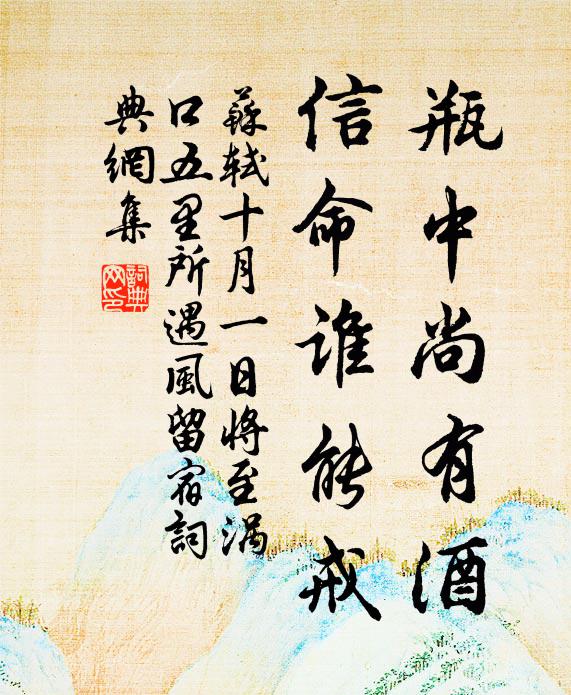 瓶中尚有酒
信命誰能戒
蘇軾十月一日將至渦
口五里所遇風留宿詞
典網集
詞典
网印